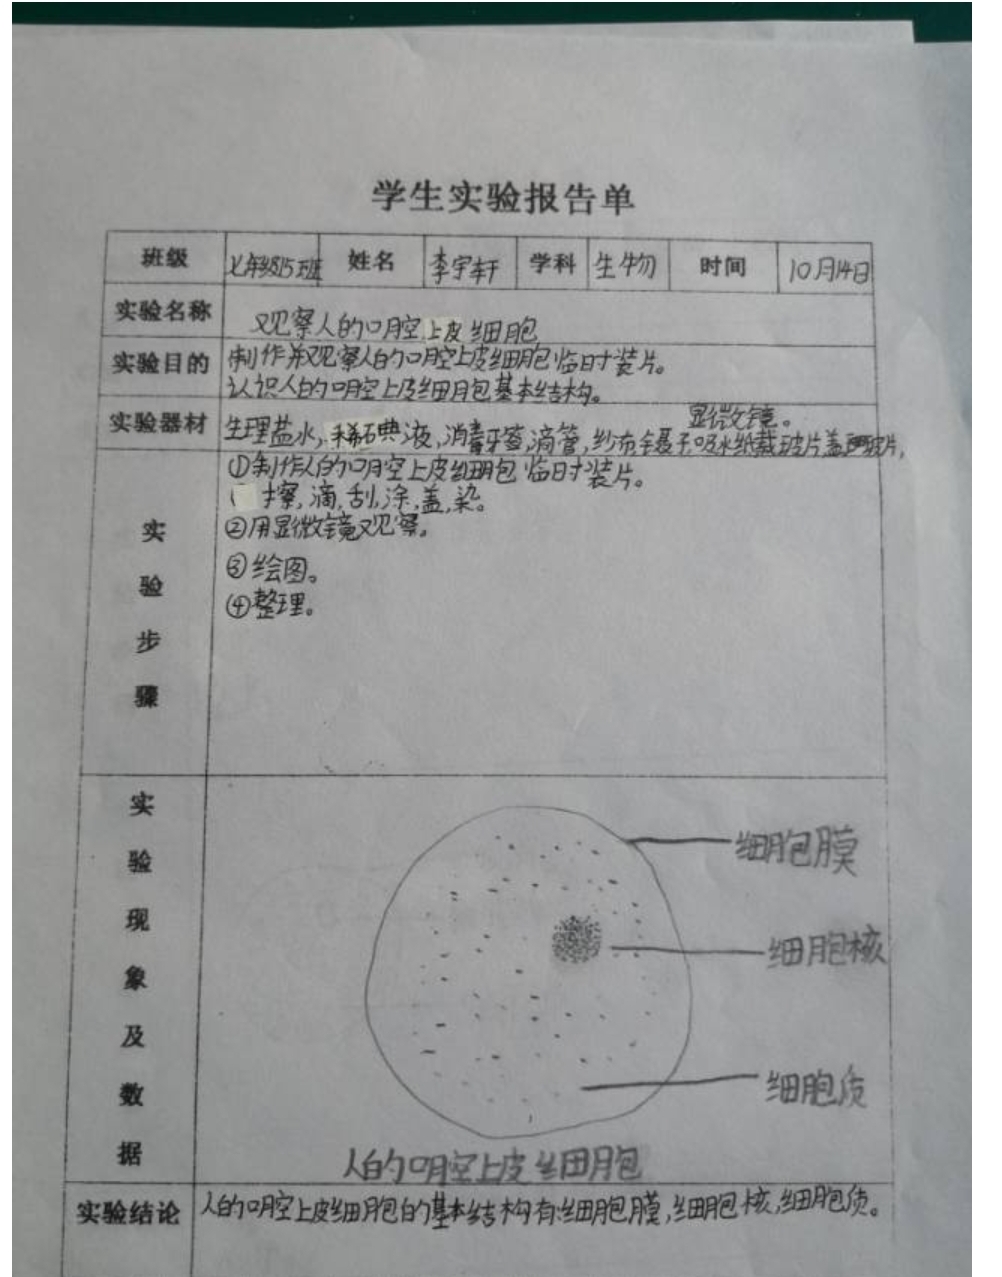 学生实验报告单
班级 七年级15班 姓名 李宇轩 学科 生物 时间 10月14日
实验名称 观察人的口腔上皮细胞
实验目的 制作并观察人的口腔上皮细胞临时装片。
认识人的口腔上皮细胞基本结构。
显微镜。
实验器材 生理盐水,稀碘液,消毒牙签,滴管,纱布,镊子,吸水纸,载玻片,盖玻片,
实验步骤
①制作人的口腔上皮细胞临时装片。
擦,滴,刮,涂,盖,染。
②用显微镜观察。
③绘图。
④整理。
实验现象及数据
细胞膜
细胞核
细胞质
人的口腔上皮细胞
实验结论 人的口腔上皮细胞的基本结构有:细胞膜,细胞核,细胞质。